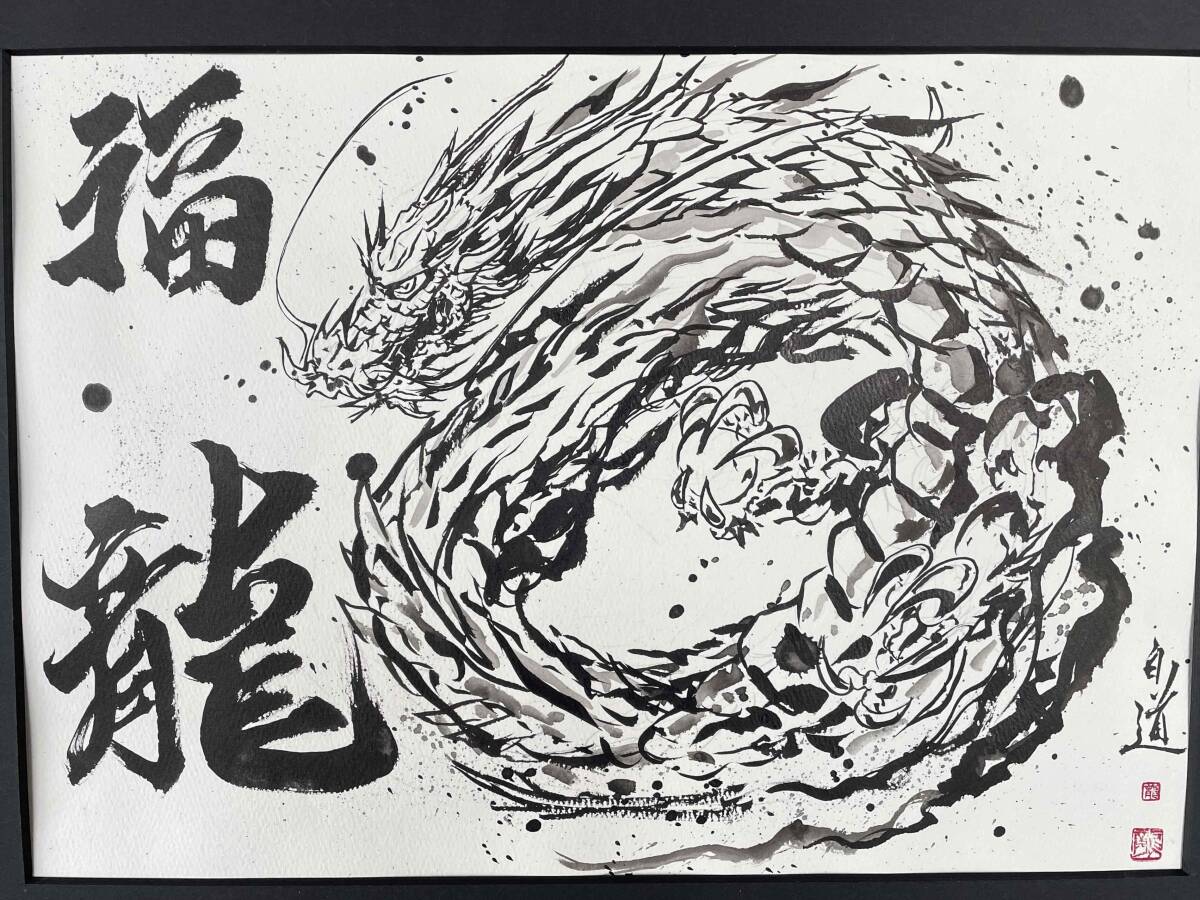 福
龍
白道